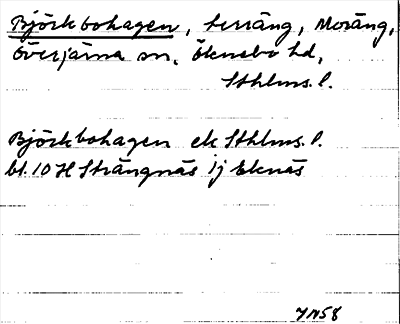 Björkbohagen, terräng, Moräng,
Överjärna sn, Öknebo hd,
Sthlms. l.
Björkbohagen ek Sthlms. l.
bl. 10 H Strängnäs ij Eknäs
JN58